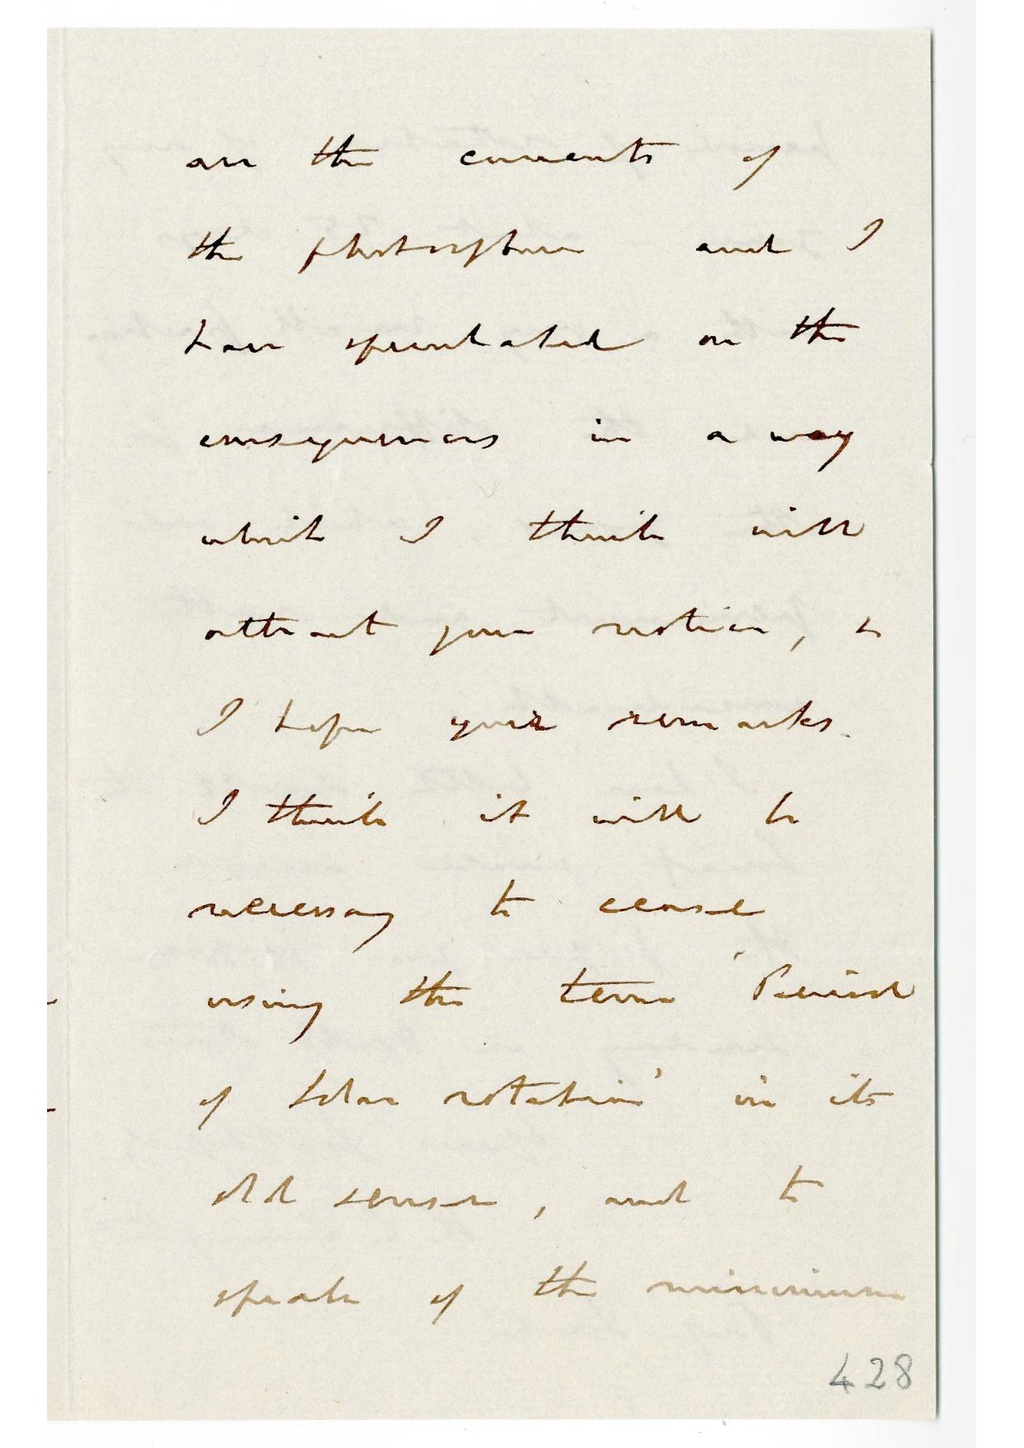 are the currents of
the photosphere and I
have speculated on the
consequences in a way
which I think will
attract your notice, &
I hope your remarks.
I think it will be
necessary to cease
using the term 'Period
of Solar rotation' in its
old sense, and to
speak of the minimum
428